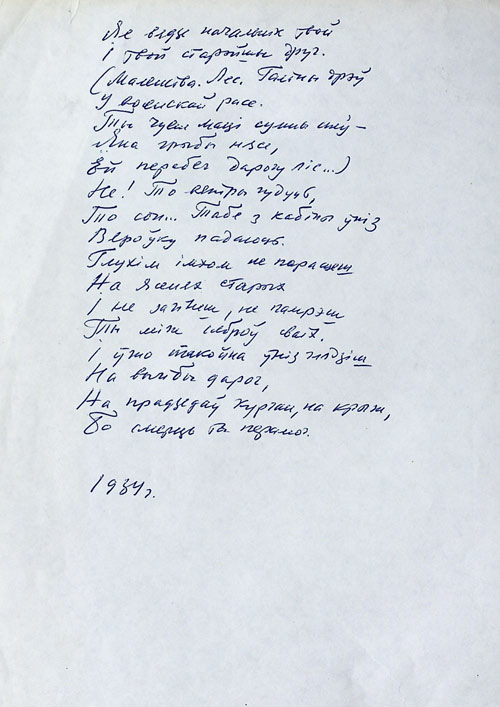 Як вядзе начальнік твой
І твой старэйшы друг.
(Маленства. Лес. Галіны дрэў
У веснавой расе.
Ты чуеш маці сумны спеў –
Яна грыбы нясе,
Ёй перабег дарогу ліс...)
Не! То вятры гудуць,
То сон... Табе з кабіны ўніз
Вяроўку падаюць.
Глухім імхом не парасцеш
На ясенях старых
І не загінеш, не памрэш
Ты між сяброў сваіх.
І ўжо спакойна ўніз глядзіш
На выгібы дарог,
На прадзедаў курган, на крыж,
Бо смерць ты перамог.
1934 г.